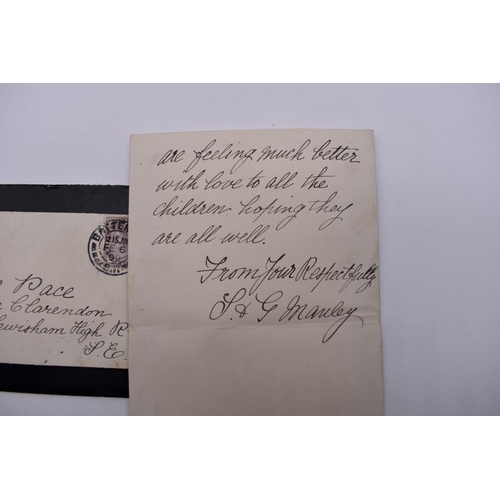 are feeling much better
with love to all the
children hoping they
are all well.
From Your Respectfully
S & G Manley
BATTER
12.15 AM
FE 6
Pace
Clarendon
ewisham High R
S.E.